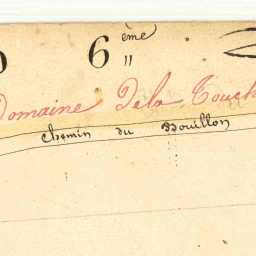 6 ème
"
Domaine De la Touch
Chemin du Bouillon